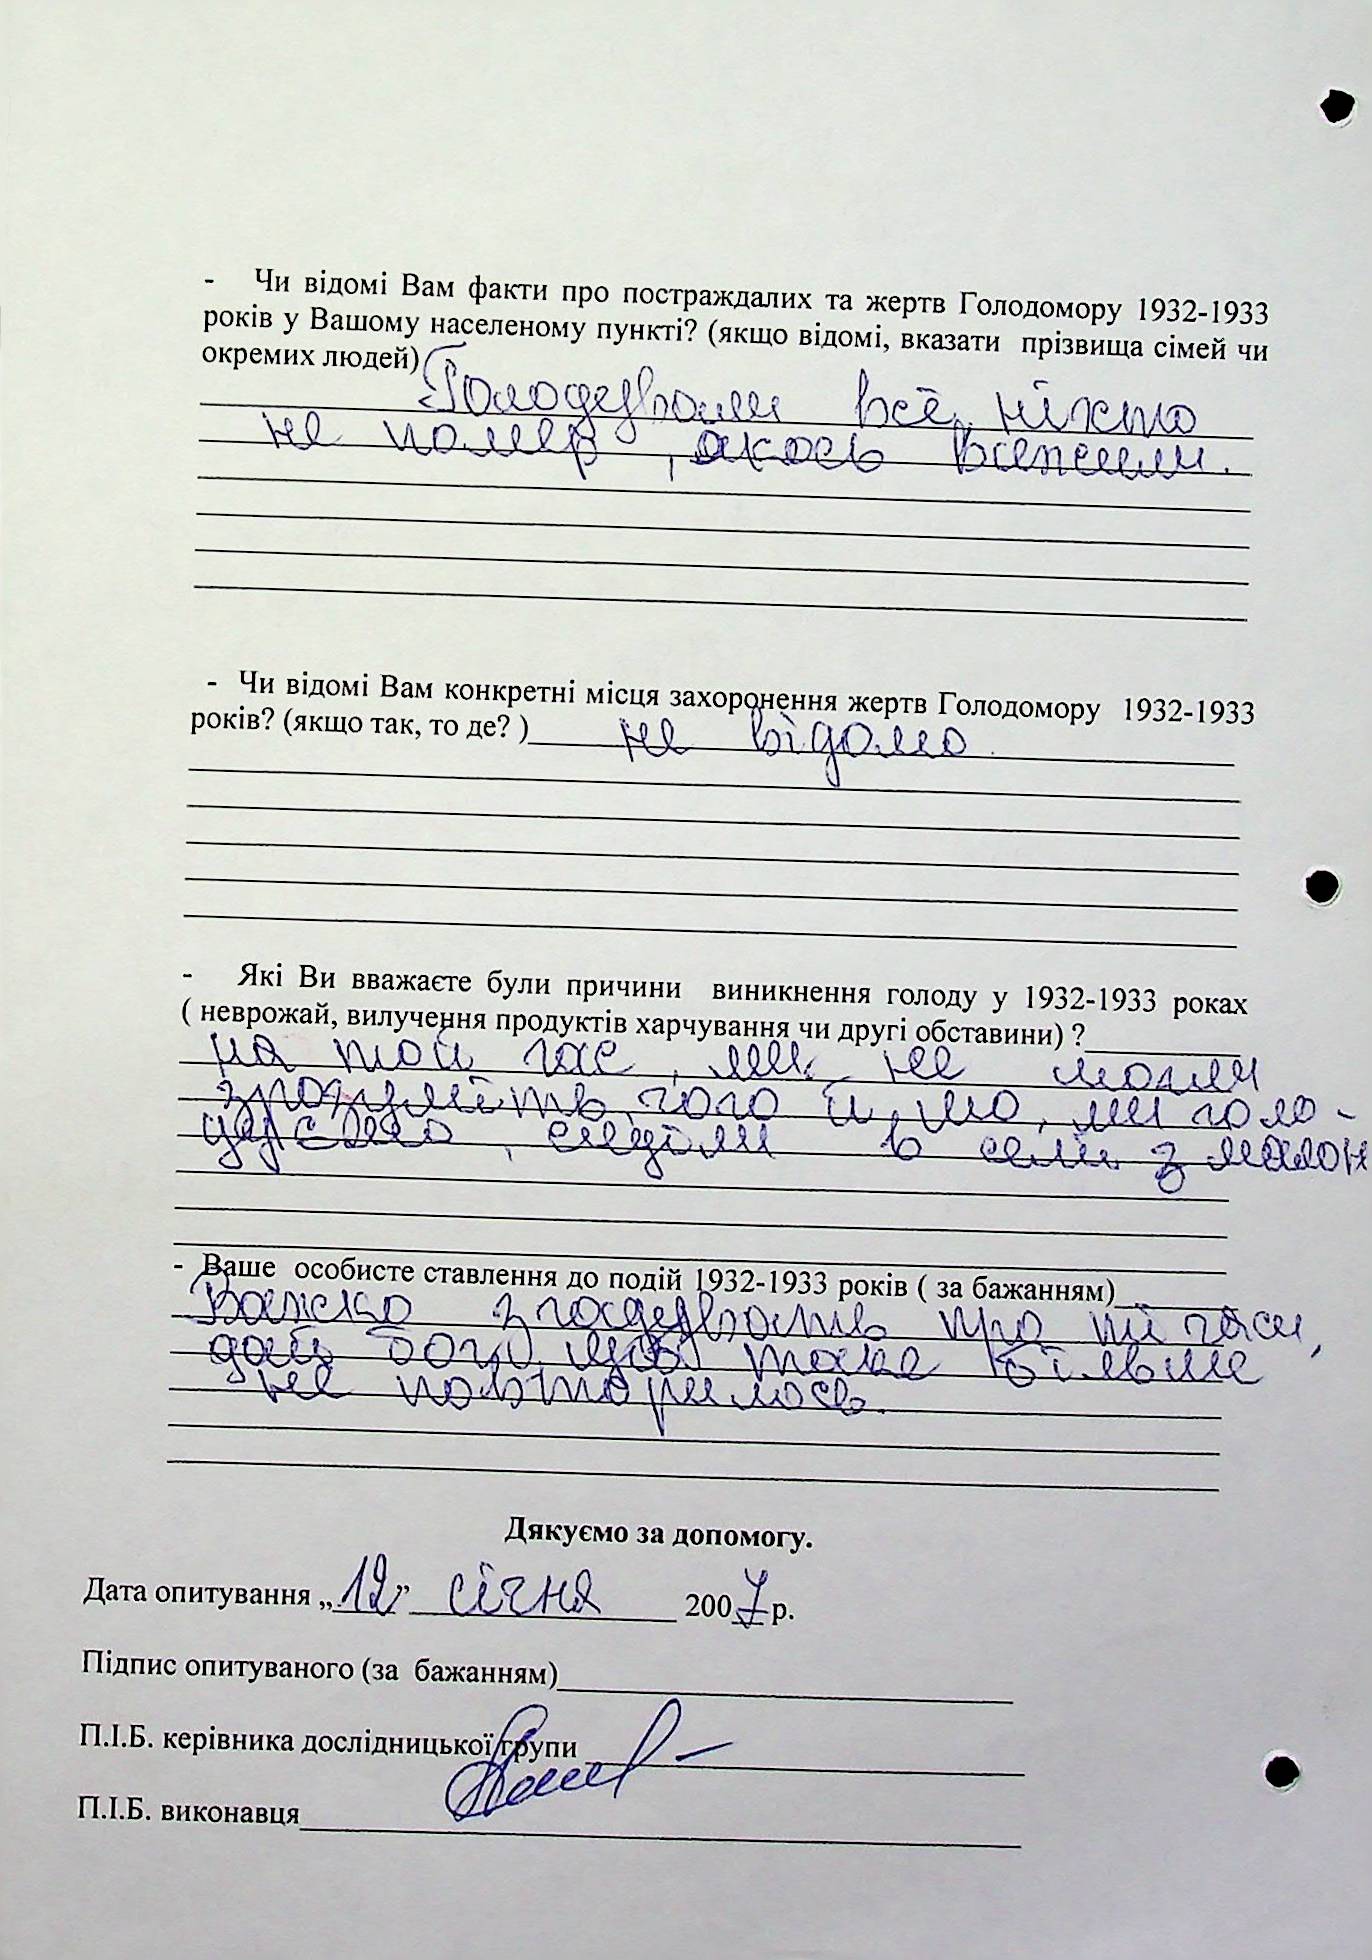 - Чи відомі Вам факти про постраждалих та жертв Голодомору 1932-1933
років у Вашому населеному пункті? (якщо відомі, вказати прізвища сімей чи
окремих людей)
Голодували всі, ніхто
не помер, якось вижили.
- Чи відомі Вам конкретні місця захоронення жертв Голодомору 1932-1933
років? (якщо так, то де? ) не відомо.
- Які Ви вважаєте були причини виникнення голоду у 1932-1933 роках
( неврожай, вилучення продуктів харчування чи другі обставини) ?
на той час, ми не могли
зрозуміть, чого й що, ми голо-
дуємо, сиділи в селі з малон
- Ваше особисте ставлення до подій 1932-1933 років ( за бажанням)
Важко згадувать про ті часи,
дай бог, щоб таке більше
не повторилось.
Дякуємо за допомогу.
Дата опитування „12” січня 2007 р.
Підпис опитуваного (за бажанням)
П.І.Б. керівника дослідницької групи
П.І.Б. виконавця